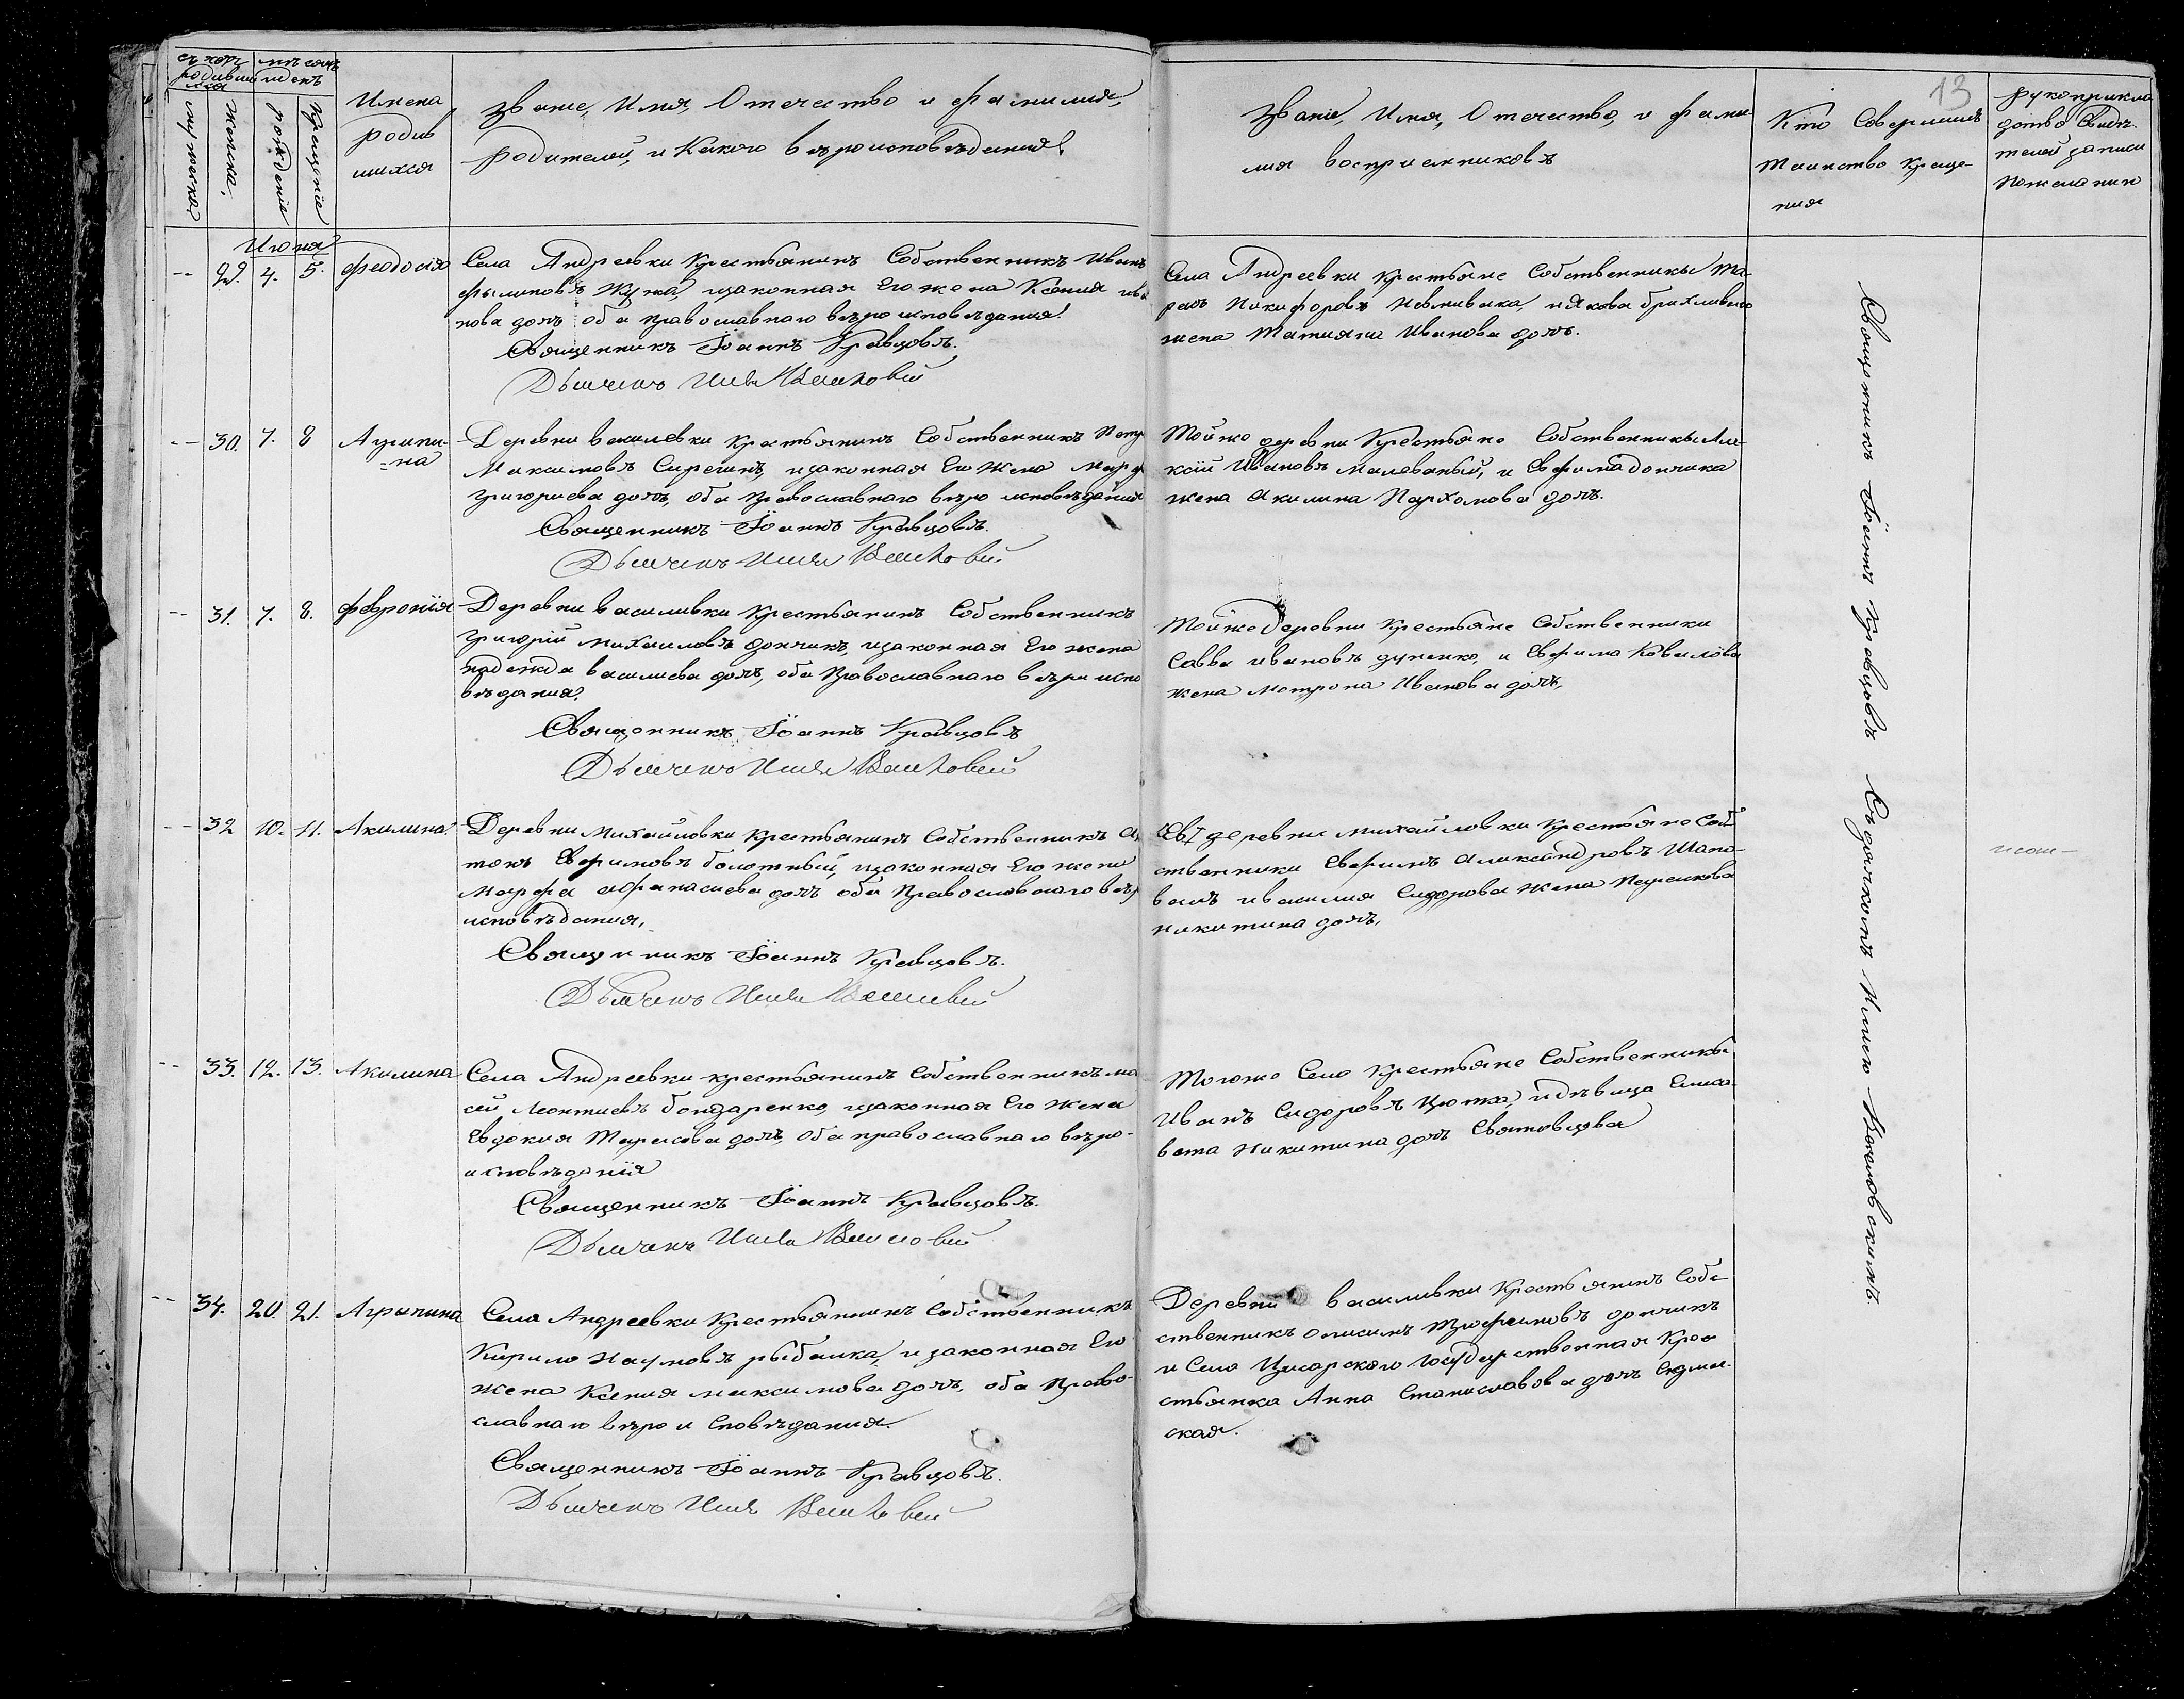 13
счетъ родив
шихся
мѣсяцъ
и день
мужеска
женска,
рожденіе
крещеніе
Имена
родив
шихся
Званіе, Имя, Отечество и фамилия,
родителей, и Какого вѣроисповѣдания.
Званіе, Имя, Отечество, и фами-
лия восприемниковъ
Кто Совершилъ
Таинство Креще-
ния
рукоприкла
дство Свидѣ-
телей записи
по желанию
Июня
29. 4. 5. Феодосія
Села Андреевки Крестьянинъ Собственникъ Иванъ
Филиповъ Жужа, изаконная Его жена Ксения ива
нова дочь оба православнаго вѣро исповѣдания.
Священникъ Іоаннъ Кравцовъ.
Дьячекъ Илья
Села Андреевки крестьяне Собственники Та-
расъ Никифоровъ Неминака, и Якова
жена Татияна Иванова дочь.
30. 7. 8 Агрипи-
=на
Деревни василевки крестьянинъ Собственникъ Петр
Максимовъ Сирешъ, изаконная Его жена Марф
григориева дочь, оба Православнаго вѣро исповѣдания
Священникъ Іоаннъ Кравцовъ.
Дьячекъ Илья
Той же деревни Крестьяне Собственники Але-
ксій Ивановъ малеваный, и Евфима дончика
жена акилина Пархомова дочь.
31. 7. 8. Февронія
Деревни василивки крестьянинъ Собственникъ
григорій михаиловъ дончикъ, изаконная Его жена
надежда василиева дочь, оба Православнаго вѣро испо
вѣдания.
Священникъ Іоаннъ Кравцовъ
Дьячекъ Илья
Той же деревни Крестьяне Собственники
Савва ивановъ дупенко, и Евфима Ковалова
жена мотрона Иванова дочь,
32 10. 11. Акилина
Деревни Михайловки крестьянинъ Собственникъ Ан
тонъ Евфимовъ болотный, изаконная Его жена
Марфа афанасиева дочь оба Православнаго вѣр
исповѣдания.
Священникъ Іоаннъ Кравцовъ.
Дьячекъ Илья
деревни михайловки крестьяне Соб-
ственники Евфимъ александровъ Шапо-
валъ ивасилия Сидорова жена Параскева
никитина дочь,
33. 12. 13. Акилина
Села Андреевки крестьянинъ Собственникъ мо
сей Леонтиевъ бондаренко, изаконная Его жена
Евдокия Тарасова дочь, оба православнаго вѣро-
исповѣданія
Священникъ Іоаннъ Кравцовъ.
Дьячекъ Илья
Тогоже Села Крестьяне Собственники
Иванъ Сидоровъ Цютка, и дѣвица Елиса-
вета Никитина дочь Святовцова
34. 20. 21. Агрыпина
Села Андреевки Крестьянинъ Собственникъ
Кирило Наумовъ рыбалка, изаконная Его
жена Ксения максимова дочь, оба Право-
славнаго вѣро исповѣдания.
Священникъ Іоаннъ Кравцовъ.
Дьячекъ Илья
Деревни василивки Крестьянинъ Соб-
ственникъ онисимъ Трофимовъ дончикъ
и Села Цисарскаго Государственная Кре-
стьянка Анна Станиславова дочь
ская.
Священникъ Іоаннъ Кравцовъ Съ дячкомъ Илиею